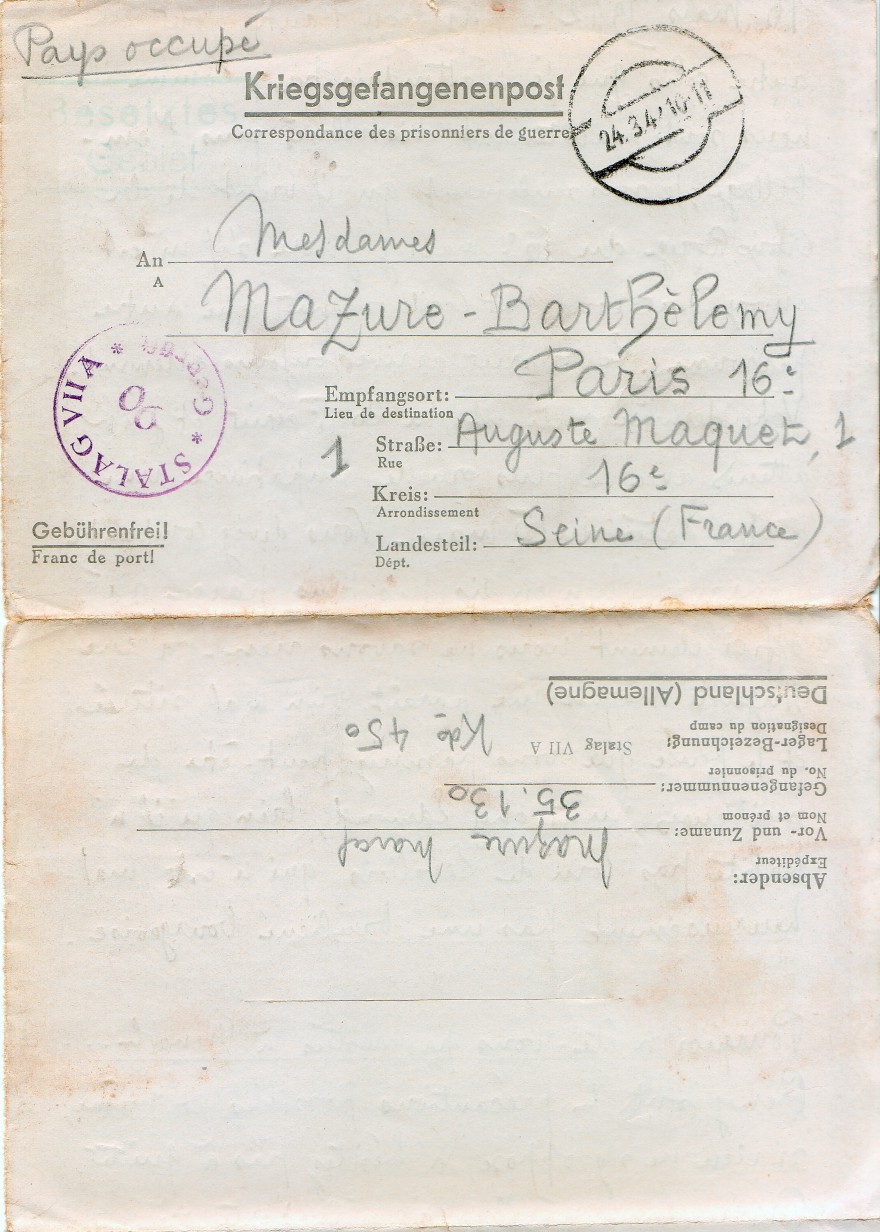 Pays occupé
Kriegsgefangenenpost
Correspondance des prisonniers de guerre
24.3.4 10-11
An
A
Mesdames
Mazure-Barthèlemy
Empfangsort: Paris 16e
Lieu de destination
1 Straße: Auguste Maquet, 1
Rue
Kreis: 16e
Arrondissement
Landesteil: Seine (France)
Dépt.
STALAG VII A * Geprüft *
Gebührenfrei!
Franc de port!
Absender:
Expéditeur
Vor- und Zuname: Mazure
Nom et prénom
Gefangenennummer: 35.130
No. du prisonnier
Lager-Bezeichnung: Stalag VII A Kdo 450
Désignation du camp
Deutschland (Allemagne)